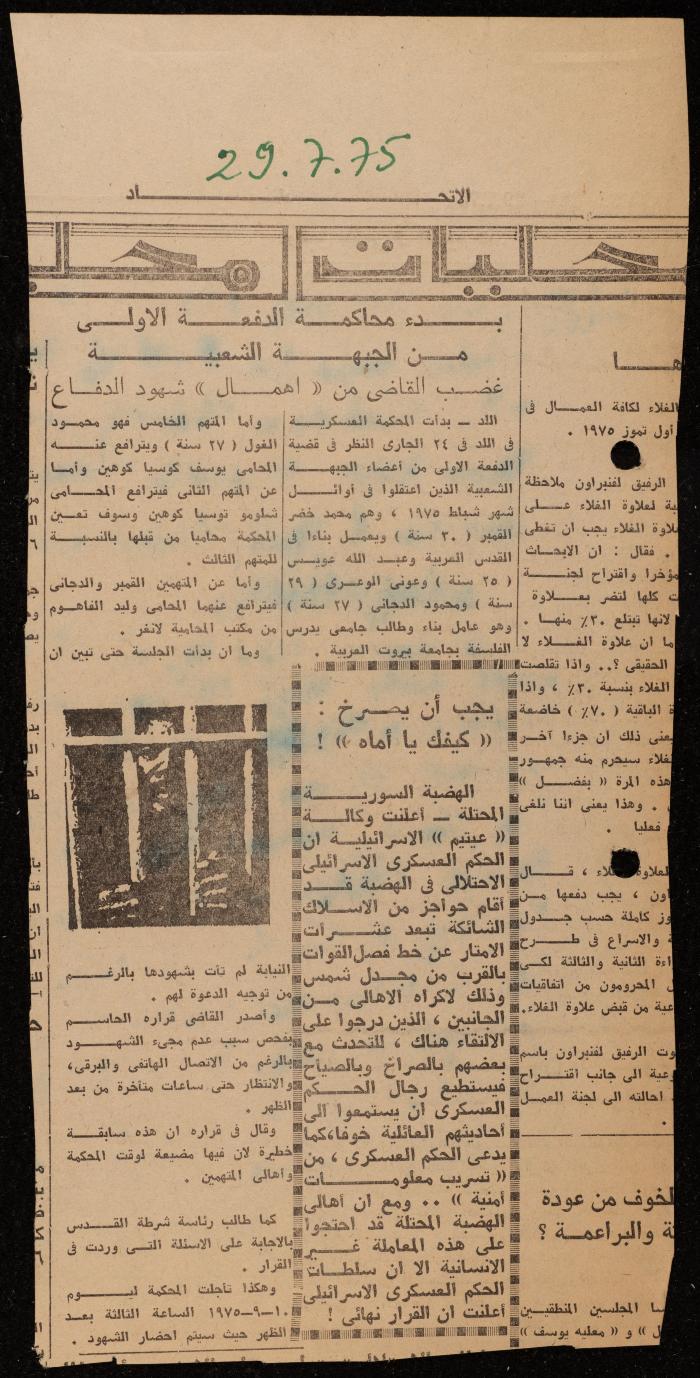 29.7.75
الاتحـــاد
محليات محل
بـــدء محاكمـــة الدفعـــة الاولـــى
مـــن الجبهـــة الشعبيـــة
غضب القاضى من « اهمــال » شهود الدفــاع
اللد ــ بدأت المحكمة العسكريــة
فى اللد فى ٢٤ الجارى النظر فى قضية
الدفعة الاولى من أعضاء الجبهــة
الشعبية الذين اعتقلوا فى أوائــل
شهر شباط ١٩٧٥ ، وهم محمد خضر
القمبر ( ٣٠ سنة ) ويعمل بناءا فى
القدس العربية وعبـد الله عويـس
( ٢٥ سنة ) وعونى الوعـرى ( ٢٩
سنة ) ومحمود الدجانى ( ٢٧ سنة )
وهو عامل بناء وطالب جامعى يدرس
الفلسفة بجامعة بيروت العربية .
وأما المتهم الخامس فهو محمـود
الغول ( ٢٧ سنة ) ويترافع عنــه
المحامى يوسف كوسيا كوهين وأمـا
عن المتهم الثانى فيترافع المحـامى
شلومو توسيا كوهين وسوف تعـين
المحكمة محاميا من قبلها بالنسبــة
للمتهم الثالث .
وأما عن المتهمين القمبر والدجانى
فيترافع عنهما المحامى وليد الفاهـوم
من مكتب المحامية لانغر .
وما ان بدأت الجلسة حتى تبين ان
النيابة لم تأت بشهودها بالرغـــم
من توجيه الدعوة لهم .
وأصدر القاضى قراره الحاســم
بفحص سبب عدم مجىء الشهــود
بالرغم من الاتصال الهاتفى والبرقى،
والانتظار حتى ساعات متأخرة من بعد
الظهر .
وقال فى قراره ان هذه سابقــة
خطيرة لان فيها مضيعة لوقت المحكمة
وأهالى المتهمين .
كما طالب رئاسة شرطة القــدس
بالاجابة على الاسئلة التـى وردت فى
القرار .
وهكذا تأجلت المحكمة ليـــوم
١٠-٩-١٩٧٥ الساعة الثالثة بعـد
الظهر حيث سيتم احضار الشهود .
يجب أن يصــرخ :
« كيفك يا أماه » !
الهضبة السوريـــة
المحتلة ــ أعلنت وكالــة
« عيتيم » الاسرائيليـة ان
الحكم العسكرى الاسرائيلى
الاحتلالى فى الهضبة قــد
أقام حواجز من الاســلاك
الشائكة تبعد عشــرات
الامتار عن خط فصل القوات
بالقرب من مجـدل شمس
وذلك لاكراه الاهالى مــن
الجانبين ، الذين درجوا على
الالتقاء هناك ، للتحدث مع
بعضهم بالصراخ وبالصياح
فيستطيع رجال الحــكم
العسكرى ان يستمعوا الى
أحاديثهم العائلية خوفا،كما
يدعى الحكم العسكرى ، من
« تسريب معلومـــات
أمنية » .. ومع ان أهالى
الهضبة المحتلة قد احتجوا
على هذه المعاملة غـــير
الانسانية الا ان سلطــات
الحكم العسكرى الاسرائيلى
أعلنت ان القرار نهائى !
هــا
الغلاء لكافة العمــال فى
أول تموز ١٩٧٥ .
الرفيق لفنبراون ملاحظة
ية لعلاوة الغلاء علــى
علاوة الغلاء يجب ان تغطى
. فقال : ان الابحــاث
مؤخرا واقتراح لجنـــة
ت كلها لتضر بعـــلاوة
لانها تبتلع ٣٠٪ منهـا .
ما ان علاوة الغــلاء لا
الحقيقى ؟.. واذا تقلصت
الغلاء بنسبة ٣٠٪ ، واذا
ة الباقية ( ٧٠٪ ) خاضعة
يعنى ذلك ان جزءا آخـر
لغلاء سيحرم منه جمهـور
هذه المرة « بفضــل »
. وهذا يعنى اننا نلغى
فعليا .
العلاوة ، قـــال
اون ، يجب دفعها مــن
وز كاملة حسب جــدول
ة والاسراع فى طـــرح
اءة الثانية والثالثة لكـى
المحرومون من اتفاقيات
عية من قبض علاوة الغلاء.
وت الرفيق لفنبراون باسم
وعية الى جانب اقتــراح
احالته الى لجنة العمـل
.
لخوف من عودة
ة والبراعمــة ؟
سا المجلسين المنطقيــين
ل » و « معليه يوسف »